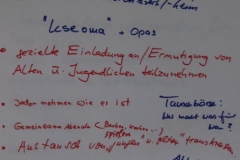 "Leseoma" + Opas
• gezielte Einladung an/Ermutigung von
Alten u. Jugendlichen teilzunehmen
• Jeden nehmen wie er ist
Tauschbörse:
Wer macht was für
wen?
• Gemeinsame Abende (
spielen)
• Austausch von "jungen" u. "alten"